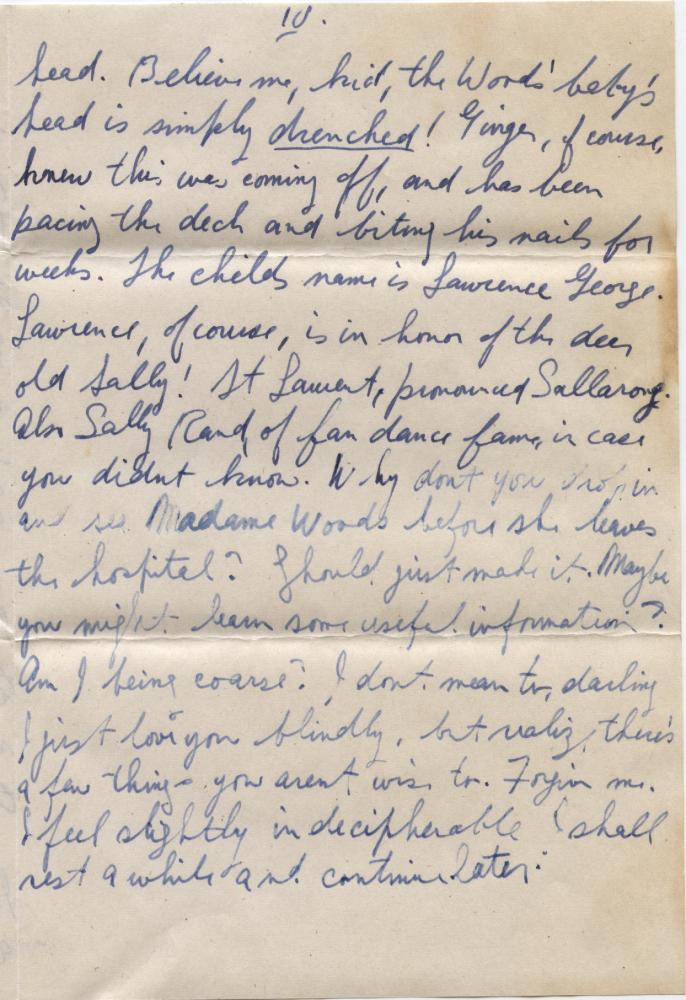 IV.
head. Believe me, kid, the Woods' baby's
head is simply drenched! Ginger, of course,
knew this was coming off, and has been
pacing the deck and biting his nails for
weeks. The childs name is Lawrence George.
Lawrence, of course, is in honor of the dear
old Sally! St Laurent, pronounced Sallarong.
Also Sally Rand, of fan dance fame, in case
you didnt know. Why dont you drop in
and see Madame Woods before she leaves
the hospital? Should just make it. Maybe
you might learn some useful information?
Am I being coarse? I dont mean to, darling
I just love you blindly, but realize there's
a few things you arent wise to. Forgive me.
I feel slightly indecipherable I shall
rest a while and continue later.